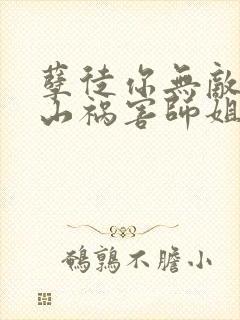 孽徒你無敵
山禍害師姐
鵪鶉不膽小